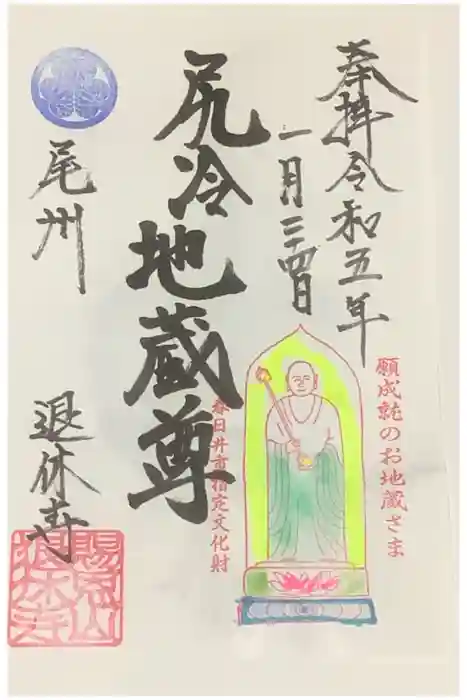 奉拝令和五年
一月二四日
願成就のお地蔵さま
尻冷地蔵尊
春日井市指定文化財
尾州 退休寺